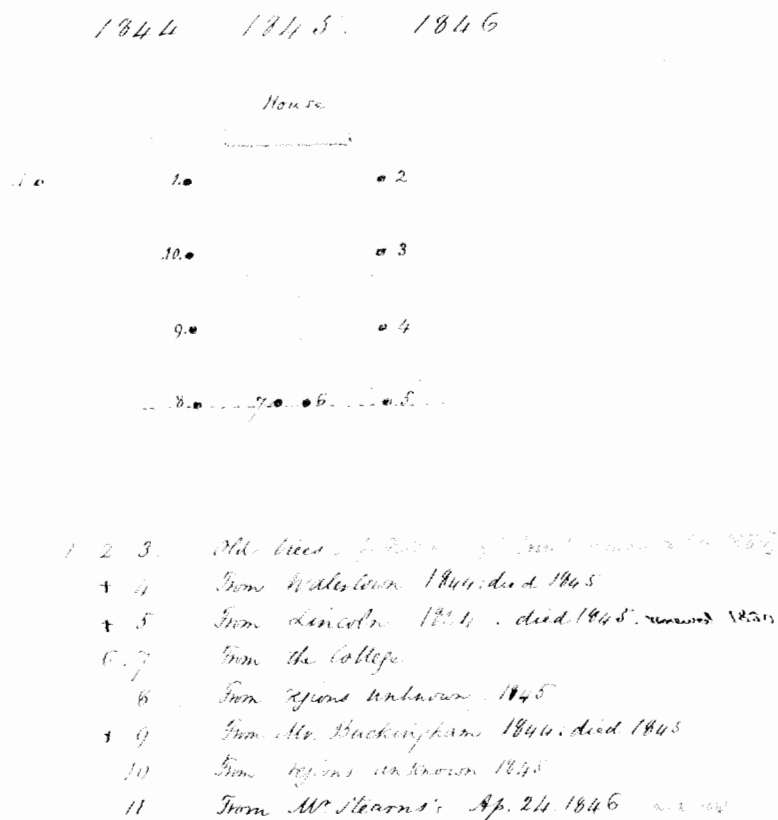 1844 1845. 1846
House
1. 2
10. 3
9. 4
8. 7 6 5
1 2 3. Old trees
+ 4 From Watertown 1844: died 1845
+ 5 From Lincoln died 1845. renewed
6.7 From the College
8 From regions unknown 1845
+ 9 From Mr. Buckingham 1844: died 1845
10 From regions unknown 1845
11 From Mr Stearns's Ap. 24. 1846